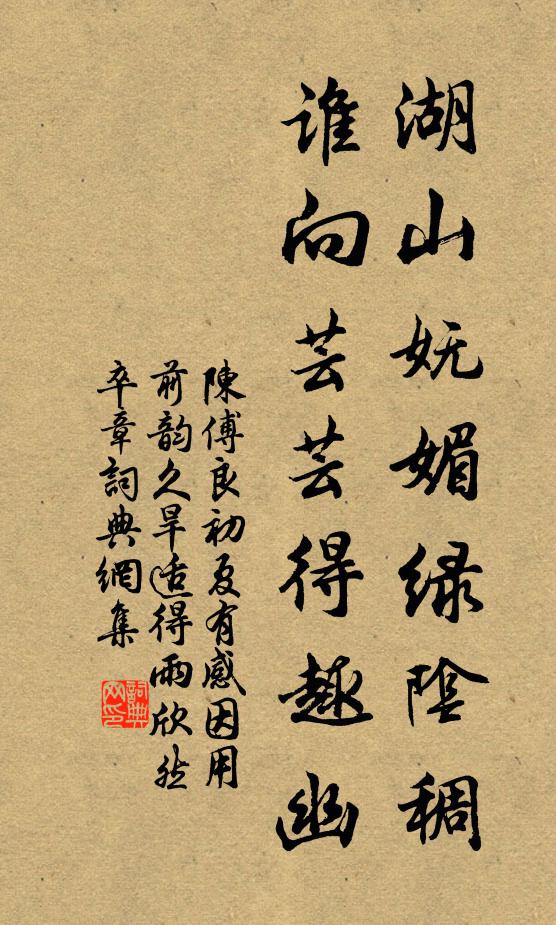 湖山妩媚緑陰稠
谁向芸芸得趣幽
陳傅良初夏有感因用
前韵久旱适得雨欣然
卒章詞典網集
詞典
网印